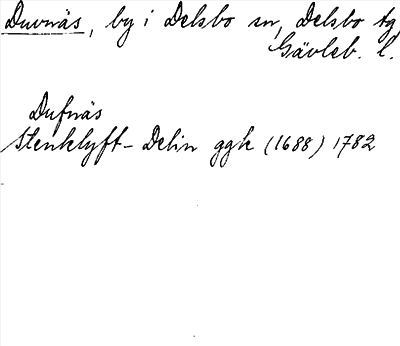 Duvnäs, by i Delsbo sn, Delsbo tg
Gävleb. l.
Dufnäs
Stenklyft- Delin ggk (1688) 1782